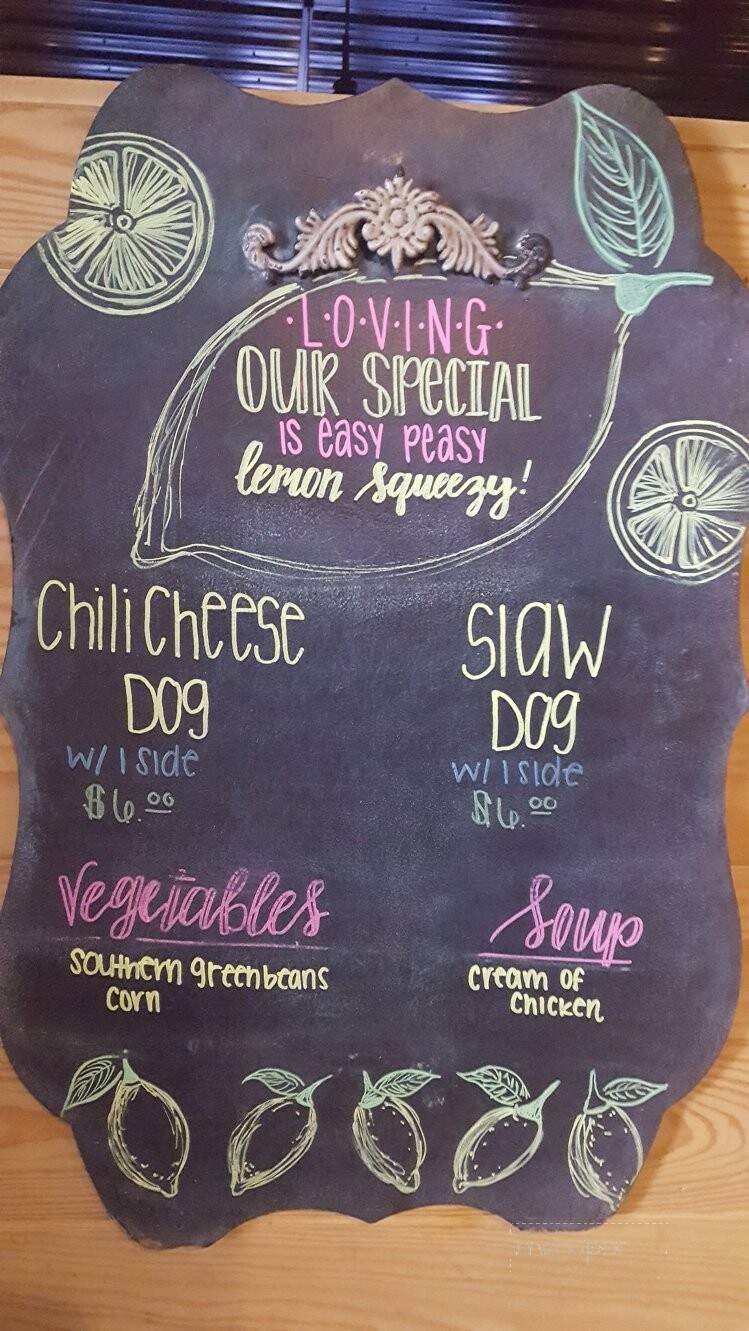 ·L·O·V·I·N·G·
OUR SPECIAL
IS EASY PEASY
lemon squeezy!
Chili Cheese
DOG
w/ 1 side
$6.00
Slaw
DOG
w/ 1 side
$6.00
Vegetables
southern greenbeans
corn
Soup
cream of
chicken